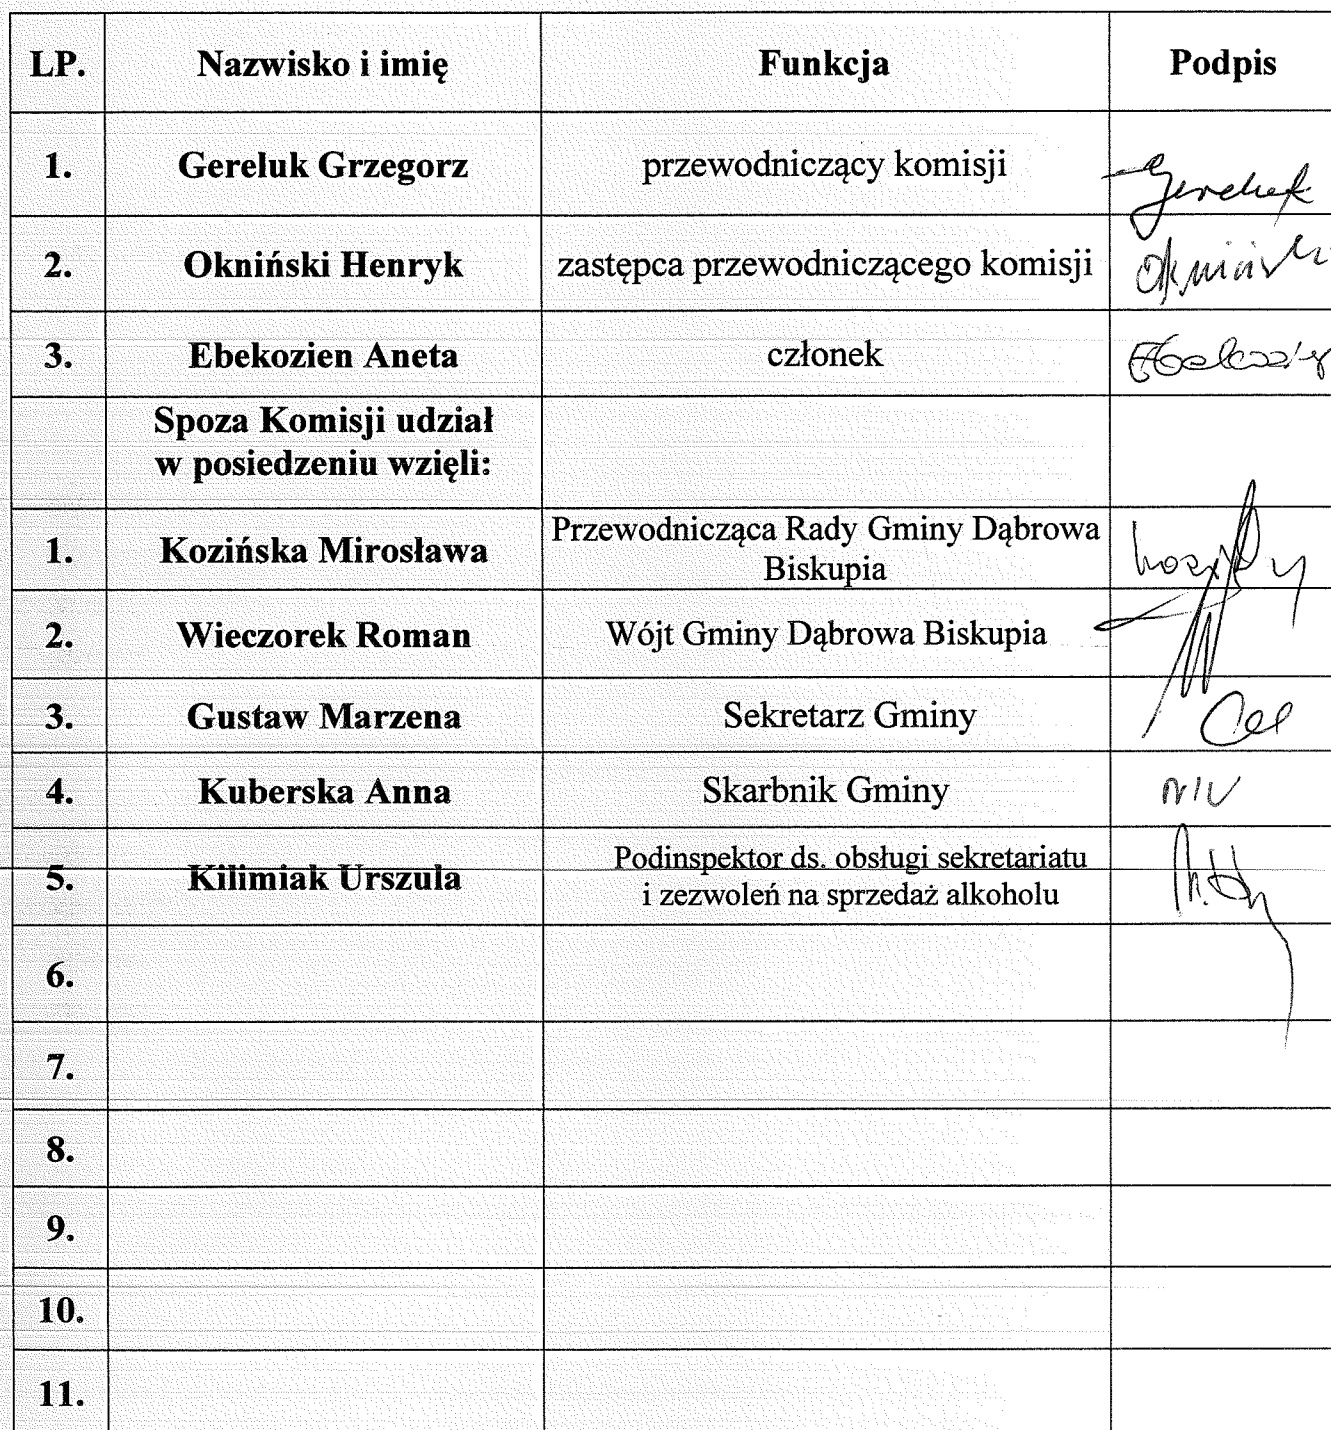 LP. Nazwisko i imię Funkcja Podpis
1. Gereluk Grzegorz przewodniczący komisji Gereluk
2. Okniński Henryk zastępca przewodniczącego komisji
3. Ebekozien Aneta członek
Spoza Komisji udział
w posiedzeniu wzięli:
1. Kozińska Mirosława Przewodnicząca Rady Gminy Dąbrowa
Biskupia
2. Wieczorek Roman Wójt Gminy Dąbrowa Biskupia
3. Gustaw Marzena Sekretarz Gminy
4. Kuberska Anna Skarbnik Gminy
5. Kilimiak Urszula Podinspektor ds. obsługi sekretariatu
i zezwoleń na sprzedaż alkoholu
6.
7.
8.
9.
10.
11.